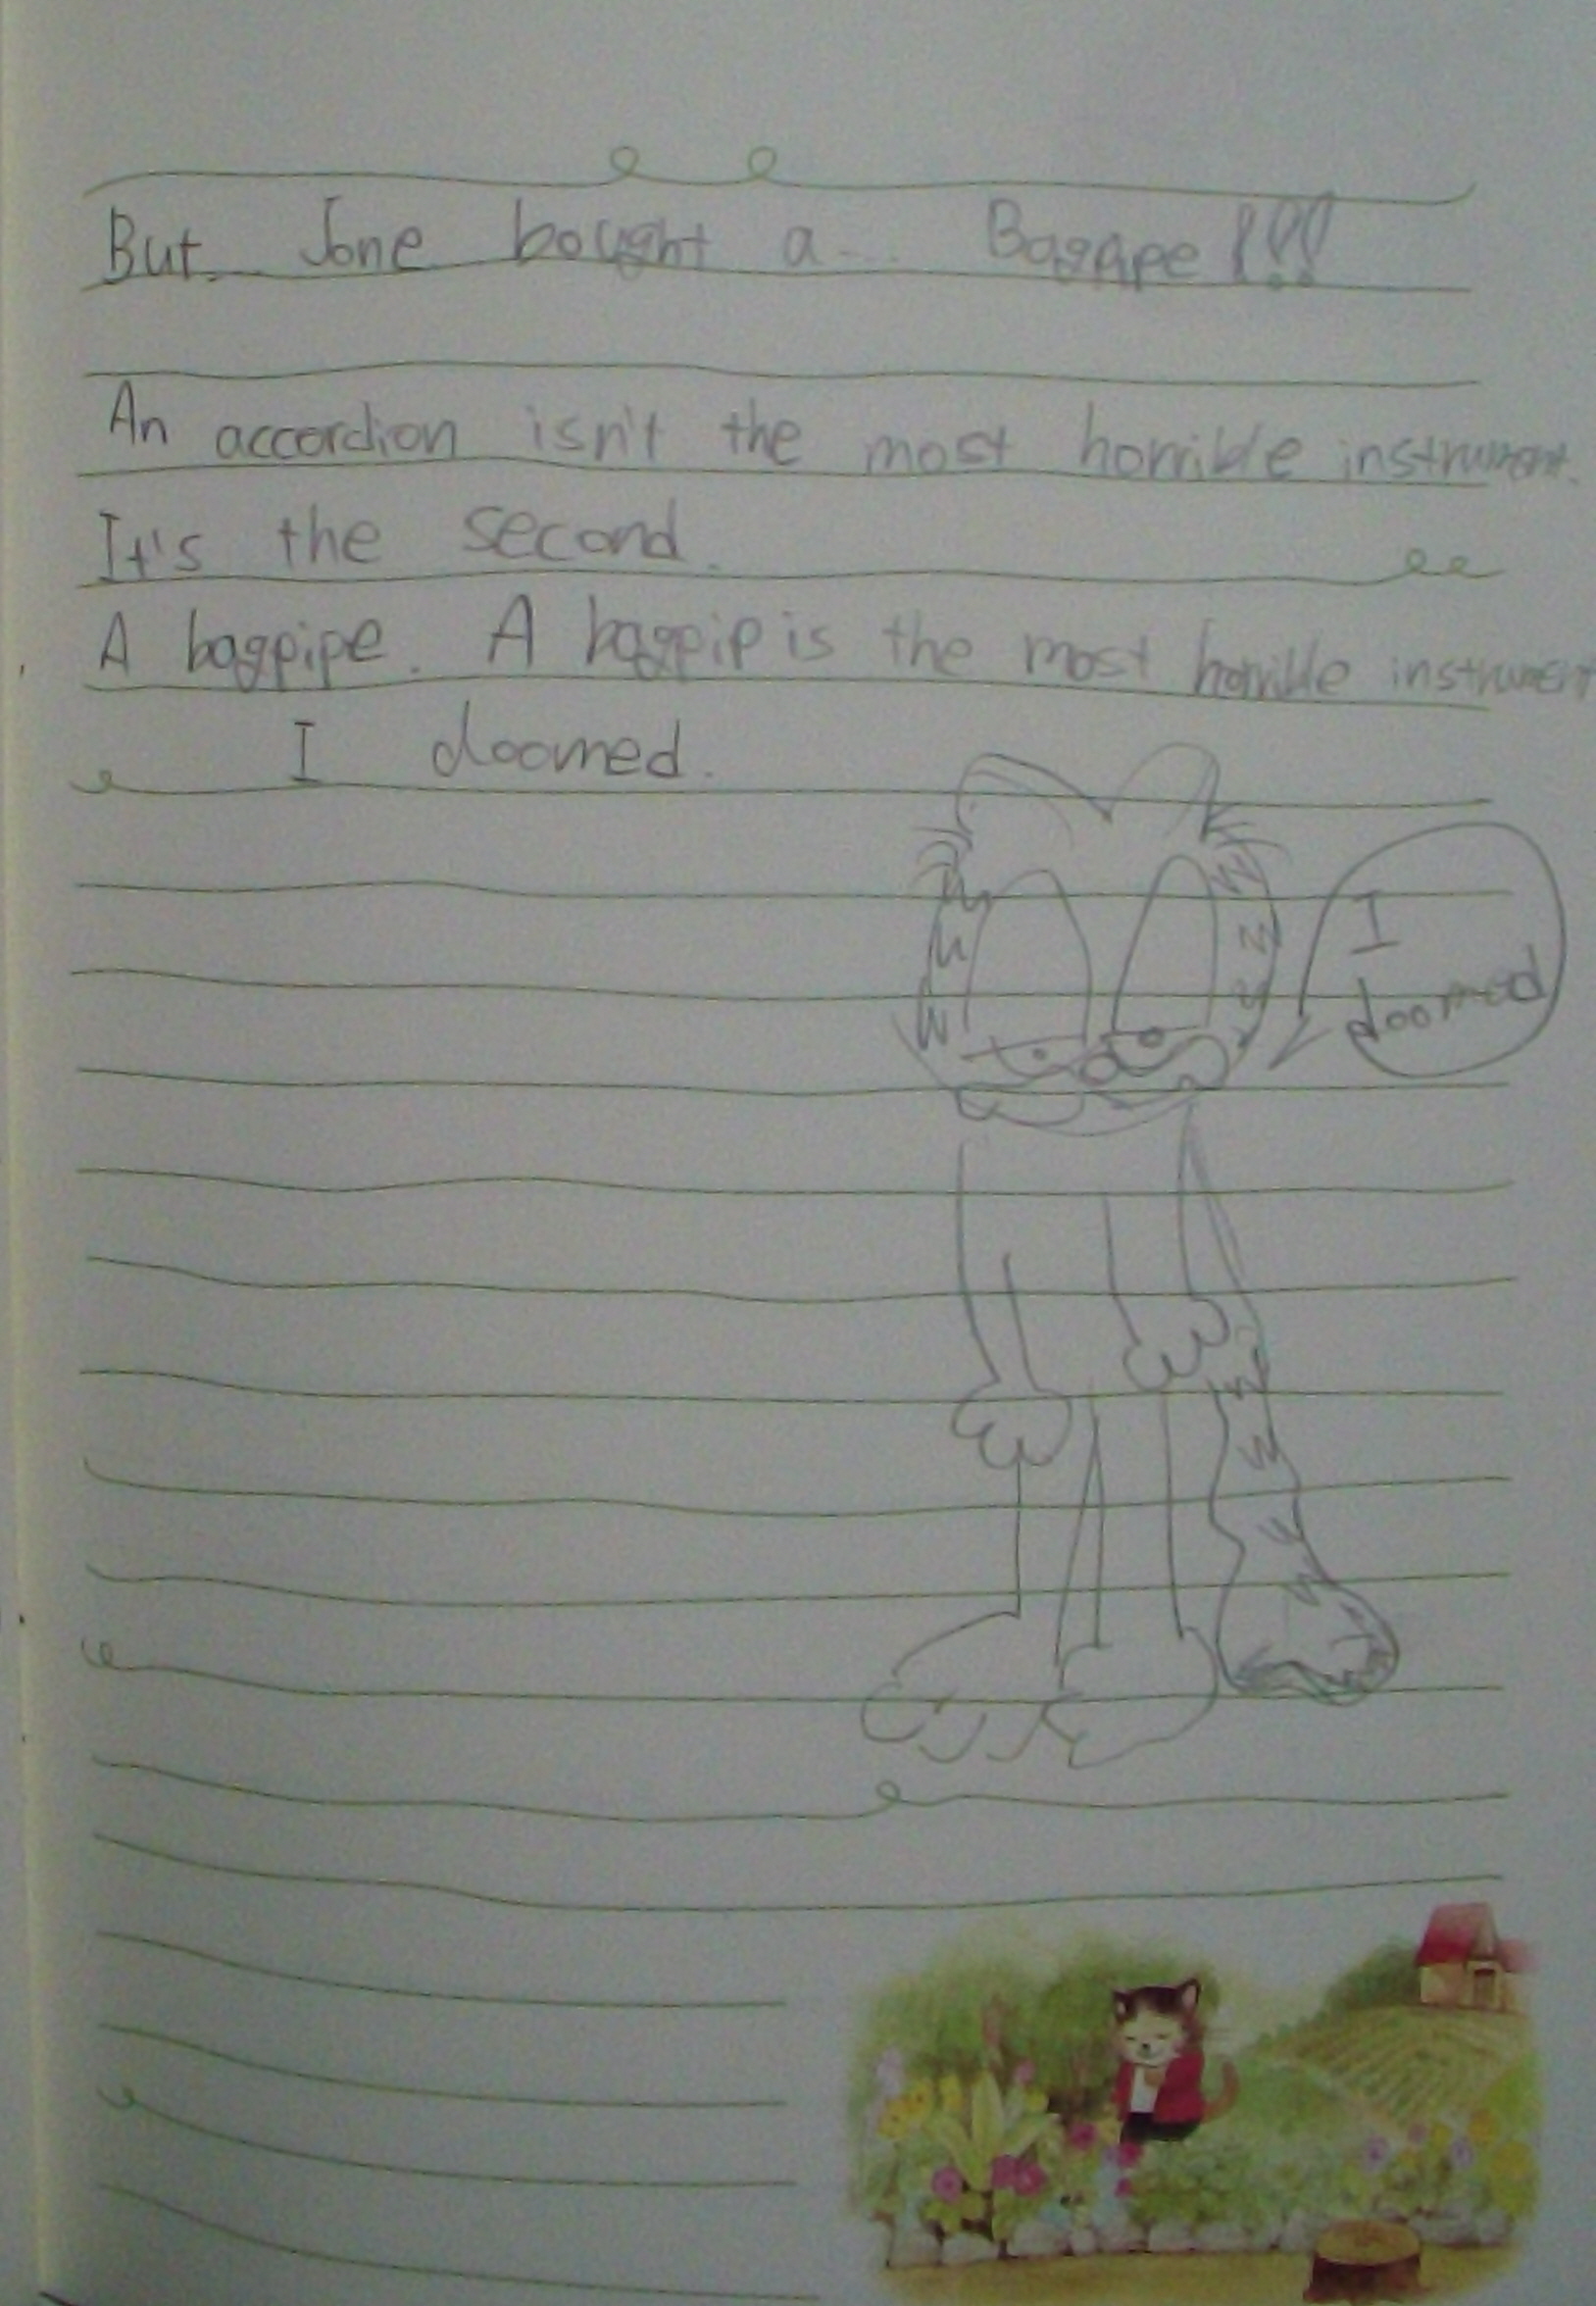 But. Jone bought a... Bagape!!!
An accordion isn't the most horrible instrument.
It's the second.
A bagpipe. A bagpip is the most horrible instrument
I doomed.
I
doomed